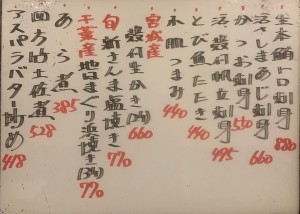 生本鮪トロ刺身 880
活〆しまあじ刺身 660
かつお刺身 550
活貝付帆立刺身 495
とび魚たたき 440
水皿つまみ 440
宮城産 殻付生かき(2ヶ) 660
旬 新さんま塩焼き 770
千葉産 地はまぐり浜焼き(3ヶ) 770
あら煮 385
四方竹土佐煮 528
アスパラバター炒め 418